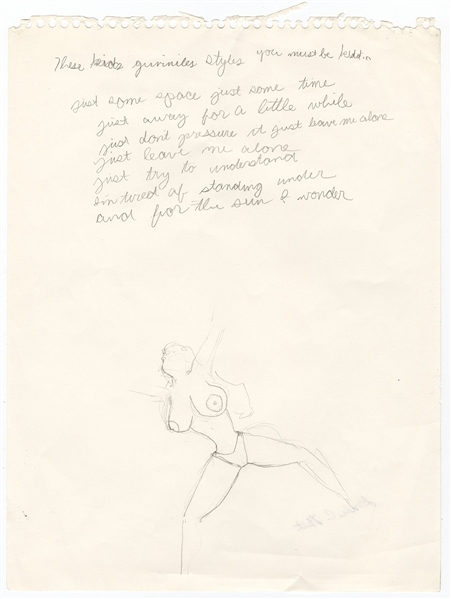 These kids styles you must be kiddin
just some space just some time
just away for a little while
just dont pressure it just leave me alone
just leave me alone
just try to understand
Im tired of standing under
and for the sun I wonder